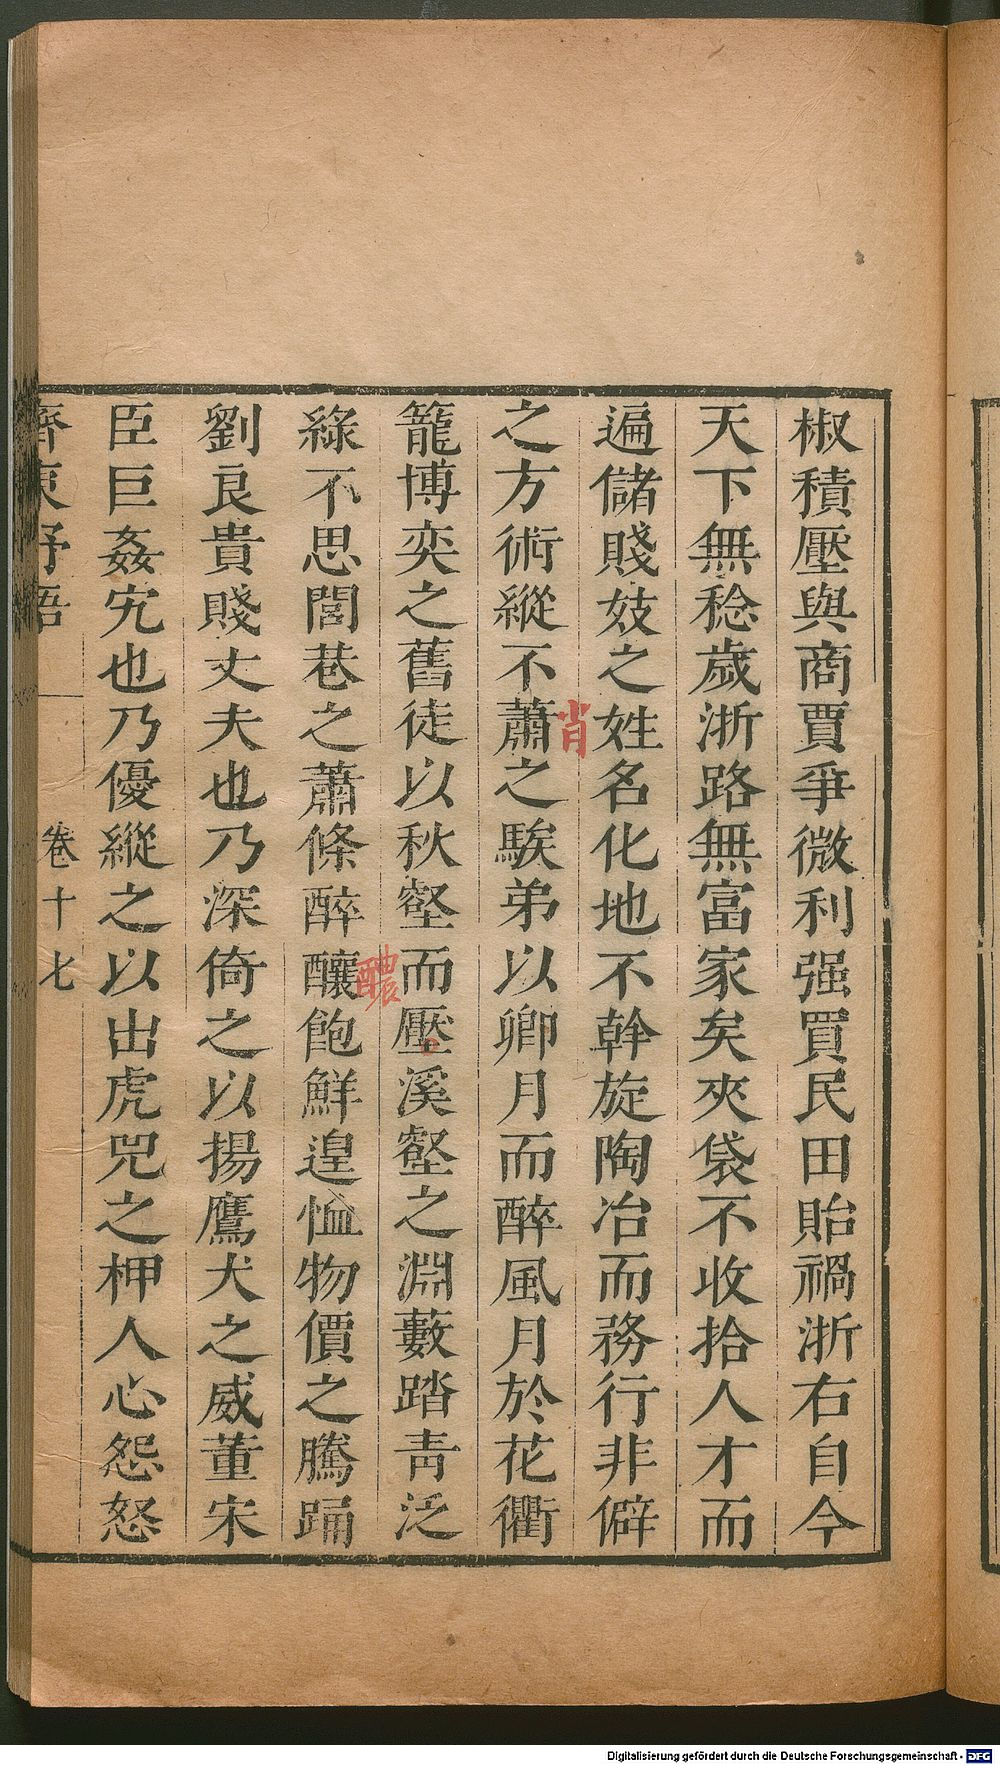 椒積壓與商賈爭微利强買民田貽禍浙右自今
天下無稔歲浙路無富家矣夾袋不收拾人才而
遍儲賤妓之姓名化地不斡旋陶冶而務行非僻
之方術縱不蕭之騃弟以卿月而醉風月於花衢
肖
籠博奕之舊徒以秋壑而壓溪壑之淵藪踏青泛
綠不思閭巷之蕭條醉釀飽鮮遑恤物價之騰踊
醲
劉良貴賤丈夫也乃深倚之以揚鷹犬之威董宋
臣巨姦宄也乃優縱之以出虎兕之柙人心怨怒
齊東野語
卷十七
Digitalisierung gefördert durch die Deutsche Forschungsgemeinschaft - DFG